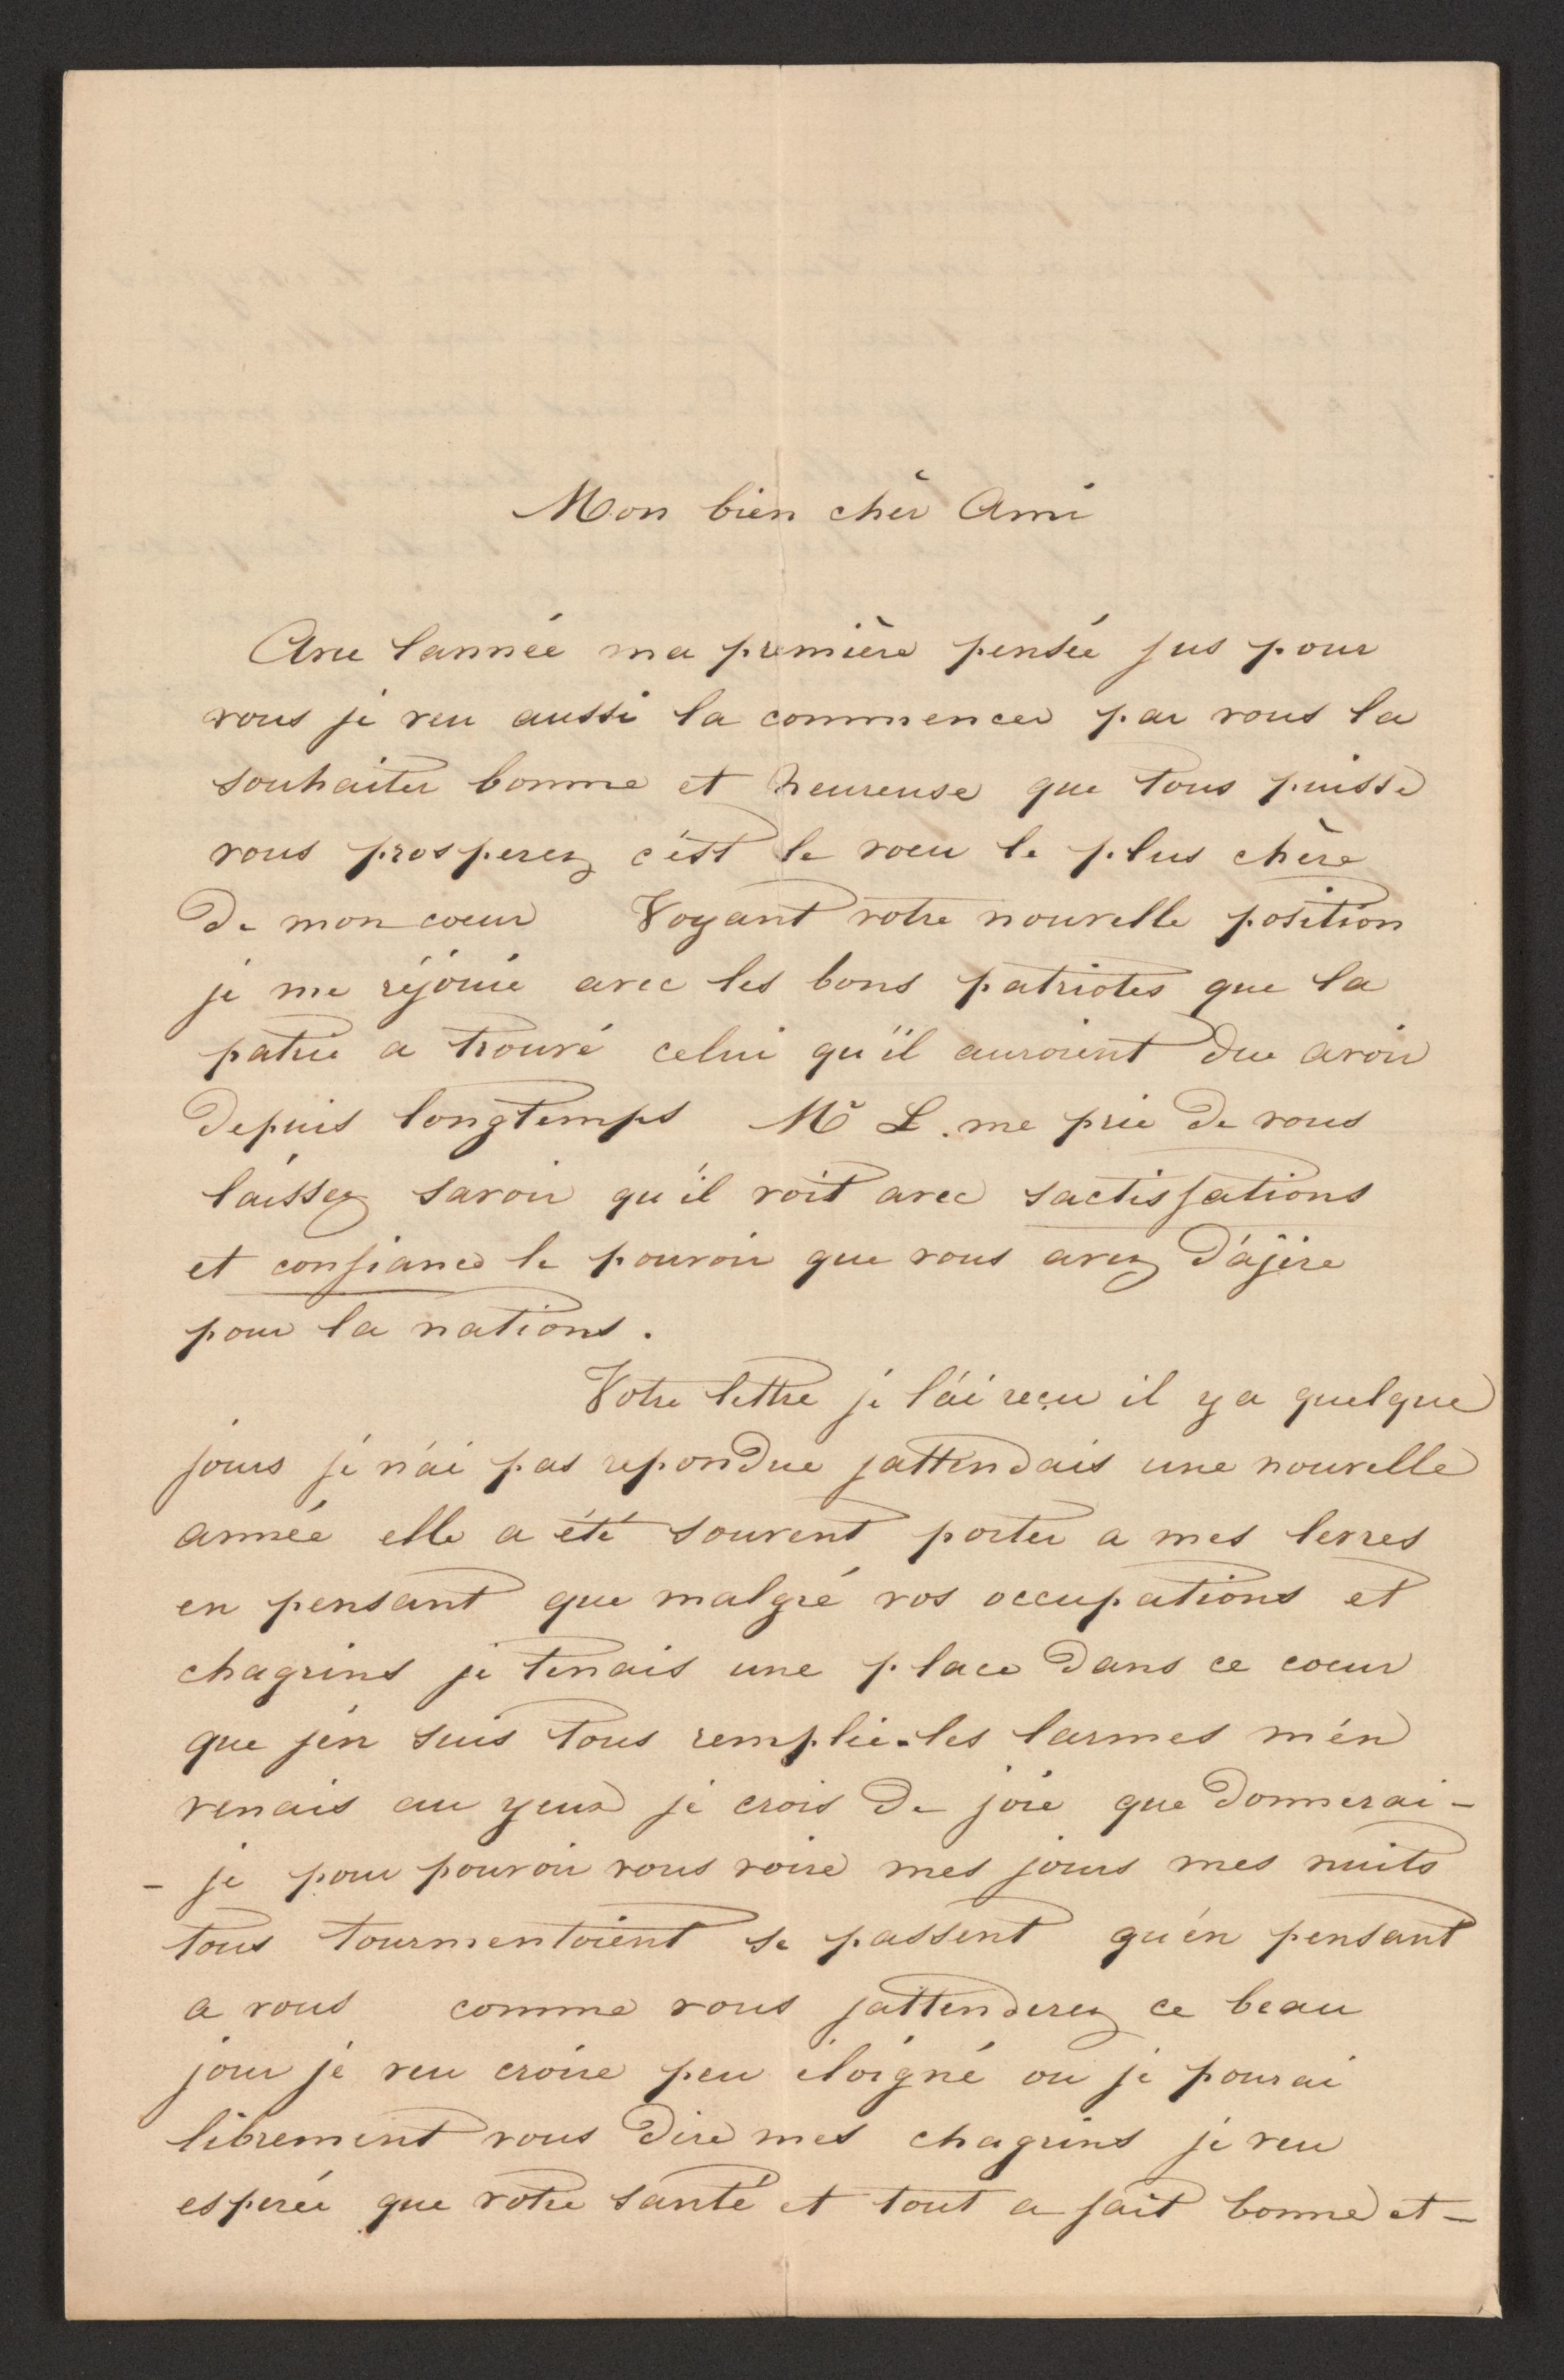 Mon bien chèr Ami
Ane lannéé ma première pensée fus pour
vous je veu aussi la commencer par vous la
souhaiter bonne et heureuse que tous puisse
vous prosperez c'ést le voeu le plus chère
de mon coeur Voyant votre nouvelle position
je me réjouie avec les bons patriotes que la
patrie a trouvé celui qu'il auroient due avoir
depuis longtemps Mr L. me prie de vous
laissez savoir qu'il voit avec sactisfations
et confiance le pouvoir que vous avez d'ajire
pour la nations.
Votre lettre je l'ái reçu il y a quelque
jours je n'ái pas repondue jattendais une nouvelle
année elle a été souvent porter a mes levres
en pensant que malgré vos occupations et
chagrins je tenais une place dans ce coeur
que jén suis tous remplie. les larmes m'én
venais au yeux je crois de joie que donnerai-
- je pour pouvoir vous voire mes jours mes nuits
tous tourmentoient se passent qu'én pensant
a vous comme vous jattenderez ce beau
jour je veu croire peu éloigné ou je pourai
librement vous dire mes chagrins je veu
esperée que votre santé et tout a fait bonne et-